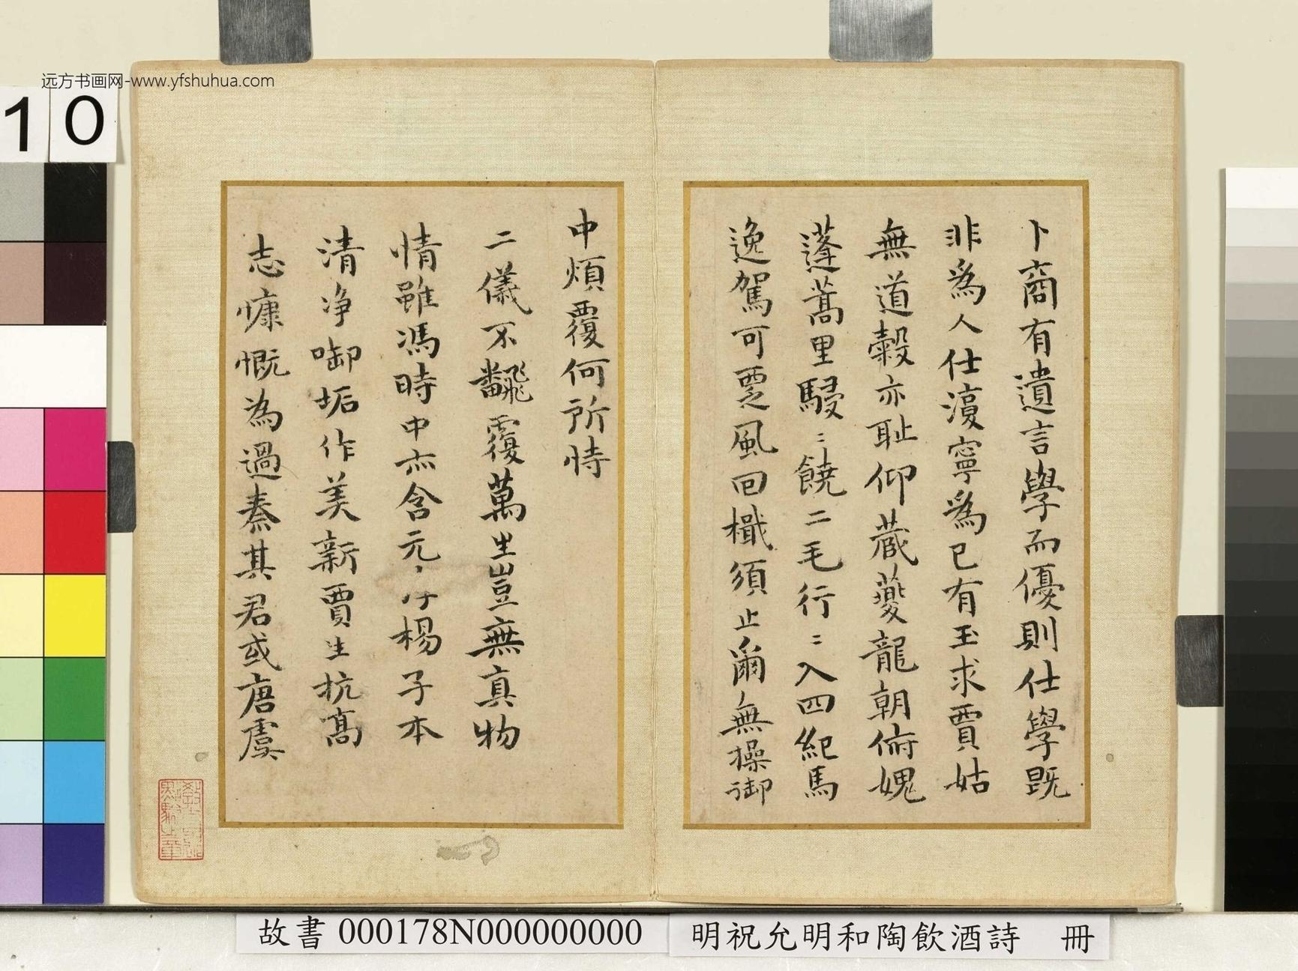 远方书画网-www.yfshuhua.com
10
卜商有遺言學而優則仕學既
非爲人仕須寧爲己有玉求賈姑
無道穀亦恥仰藏夔龍朝俯媿
蓬蒿里駸〻饒二毛行〻入四紀馬
逸駕可覂風回檝須止爾無操御
中煩覆何所恃
二儀不飜覆萬生豈無真物
情雖馮時中亦含元子楊子本
清净啣垢作美新賈生抗髙
志慷慨為過秦其君或唐虞
故書000178N000000000
明祝允明和陶飲酒詩 冊